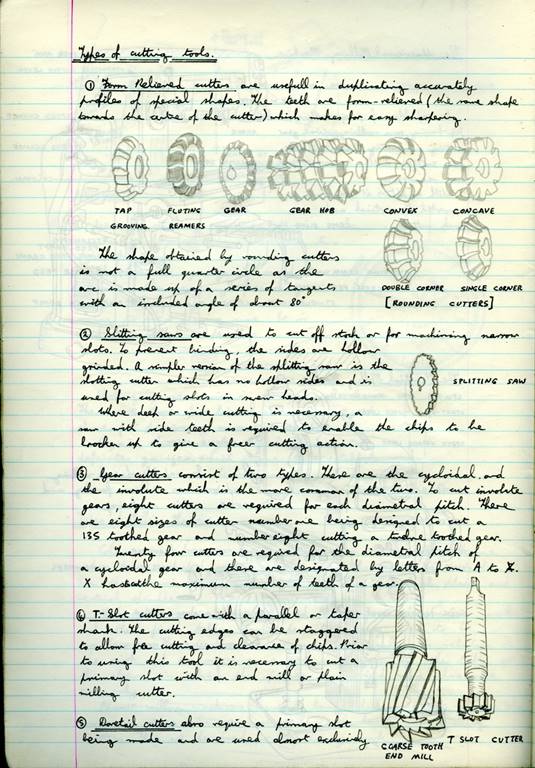 Types of cutting tools.
① Form Relieved cutters are usefull in duplicating accurately
profiles of special shapes. The teeth are form-relieved (the same shape
towards the centre of the cutter) which makes for easy sharpening.
TAP GROOVING
FLUTING REAMERS
GEAR
GEAR HOB
CONVEX
CONCAVE
The shape obtained by rounding cutters
is not a full quarter circle as the
arc is made up of a series of tangents
with an included angle of about 80°
DOUBLE CORNER SINGLE CORNER
[ROUNDING CUTTERS]
② Slitting saws are used to cut off stock or for machining narrow
slots. To prevent binding, the sides are hollow
grinded. A simpler version of the splitting saw is the
slotting cutter which has no hollow sides and is
used for cutting slots in screw heads.
SPLITTING SAW
Where deep or wide cutting is necessary, a
saw with side teeth is required to enable the chips to be
broken up to give a freer cutting action.
③ Gear cutters consist of two types. There are the cycloidal and
the involute which is the more common of the two. To cut involute
gears, eight cutters are required for each diametral pitch. There
are eight sizes of cutter number one being designed to cut a
135 toothed gear and number eight cutting a twelve toothed gear.
Twenty four cutters are required for the diametral pitch of
a cycloidal gear and there are designated by letters from A to X.
X has the maximum number of teeth of a gear.
④ T-Slot cutters come with a parallel or taper
shank. The cutting edges can be staggered
to allow free cutting and clearance of chips. Prior
to using this tool it is necessary to cut a
primary slot with an end mill or plain
milling cutter.
⑤ Dovetail cutters also require a primary slot
being made and are used almost exclusively
COARSE TOOTH
END MILL
T SLOT CUTTER